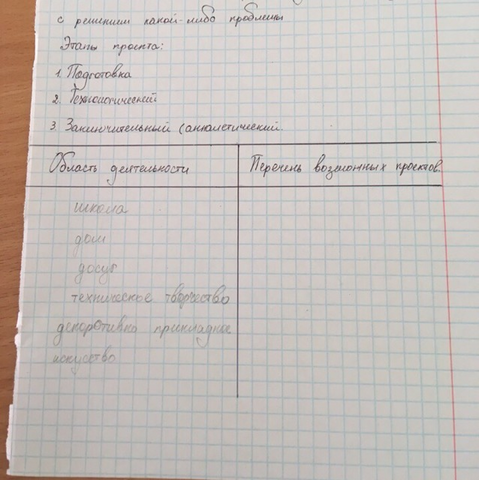 с решением какой-либо проблемы
Этапы проекта:
1. Подготовка
2. Технологический
3. Заключительный (аналетический
Область деятельности
Перечень возможных проектов.
школа
дом
досуг
техническое творчество
декоротивно прикладное
искуство